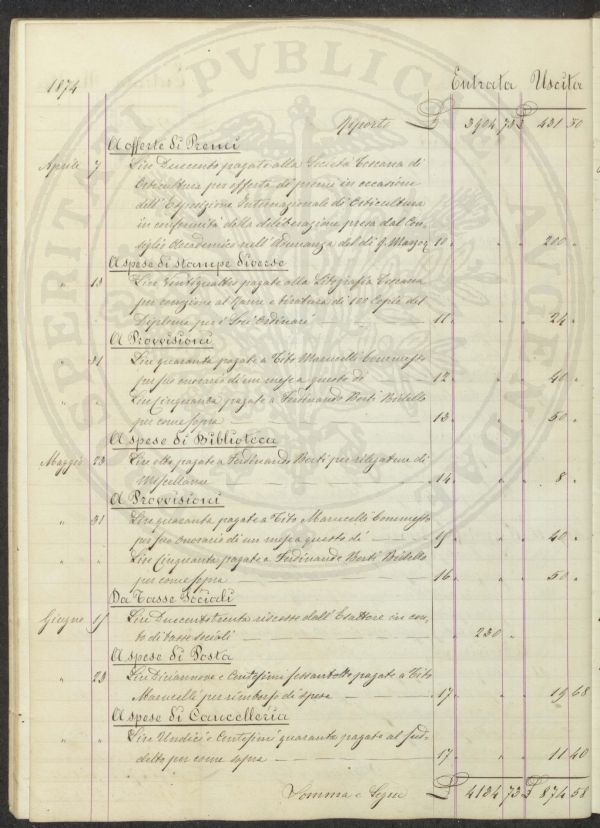 PROSPERITATI PVBLICAE AVGENDAE
1874 Entrata Uscita
Riporto £ 3904 73 £ 431 50
A offerte di Premi
Aprile 7 Lire Duecento pagate alla Società Toscana di
Orticultura per offerta di premi in occasione
dell'Esposizione Internazionale di Orticultura
in conformità della deliberazione presa dal Con-
siglio Accademico nell'Adunanza del dì 9. Marzo 10 " " " 200 "
A spese di stampe diverse
" 13 Lire Ventiquattro pagate alla Litografia Toscana
per correzione al Rame e tiratura di 100 Copie del
Diploma per i Soci Ordinari 11 " " " 24 "
A Provvisioni
" 31 Lire quaranta pagate a Tito Marucelli Commesso
per suo onorario di un mese a questo dì 12 " " " 40 "
" " Lire Cinquanta pagate a Ferdinando Berti Bidello
per come sopra 13 " " " 50 "
A spese di Biblioteca
Maggio 23 Lire otto pagate a Ferdinando Berti per rilegature di
Miscellanee 14 " " " 8 "
A Provvisioni
" 31 Lire quaranta pagate a Tito Marucelli Commesso
per suo onorario di un mese a questo dì 15 " " " 40 "
" " Lire Cinquanta pagate a Ferdinando Berti Bidello
per come sopra 16 " " " 50 "
Da Tasse Sociali
Giugno 15 Lire Duecentotrenta riscosse dall'Esattore in con-
to di tasse sociali 230 "
A spese di Posta
" 23 Lire Diciannove e Centesimi sessantotto pagate a Tito
Marucelli per rimborso di spese 17 " " " 19 68
A spese di Cancelleria
" " Lire Undici e Centesimi quaranta pagate al sud-
detto per come sopra 17 " " " 11 40
Somma e Segue £ 4134 73 £ 874 58